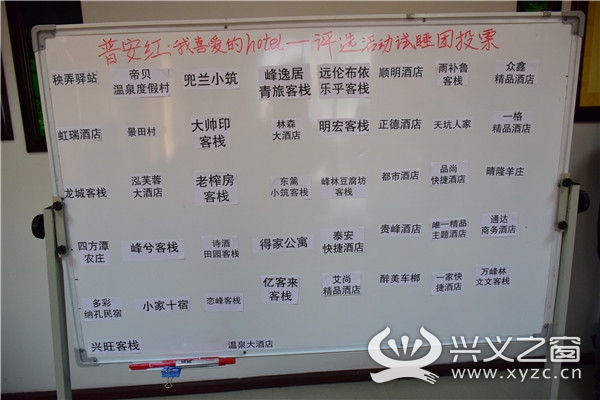 普安红·我喜爱的hotel—评选活动试睡团投票
秧弄驿站
帝贝
温泉度假村
兜兰小筑
峰逸居
青旅客栈
远伦布依
乐乎客栈
顺明酒店
雨补鲁
客栈
众鑫
精品酒店
虹瑞酒店
景田村
大帅印
客栈
林森
大酒店
明宏客栈
正德酒店
天坑人家
一格
精品酒店
龙城客栈
泓芙蓉
大酒店
老榨房
客栈
东篱
小筑客栈
峰林豆腐坊
客栈
都市酒店
品尚
快捷酒店
晴隆羊庄
四方潭
农庄
峰兮客栈
诗酒
田园客栈
得家公寓
泰安
快捷酒店
贵峰酒店
唯一精品
主题酒店
通达
商务酒店
多彩
纳孔民宿
小家十宿
恋峰客栈
亿客来
客栈
艾尚
精品酒店
醉美车榔
一家快
捷酒店
万峰林
文文客栈
兴旺客栈
温泉大酒店
兴义之窗
www.xyzc.cn